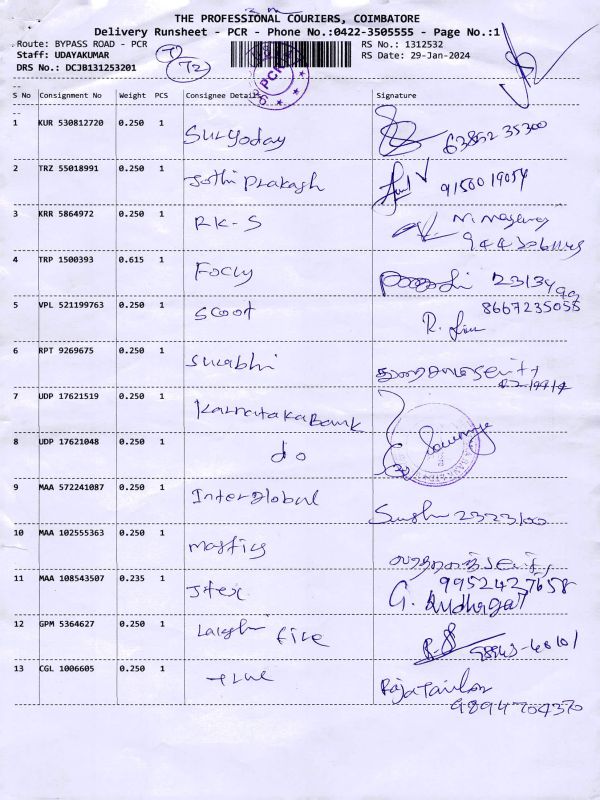 THE PROFESSIONAL COURIERS, COIMBATORE
Delivery Runsheet - PCR - Phone No.:0422-3505555 - Page No.:1
Route: BYPASS ROAD - PCR
RS No.: 1312532
Staff: UDAYAKUMAR
RS Date: 29-Jan-2024
DRS No.: DCJB131253201
T2
PCR
S No Consignment No Weight PCS Consignee Details Signature
1 KUR 530812720 0.250 1 Suryoday 63852 35300
2 TRZ 55018991 0.250 1 Jothi Prakash 9150019054
3 KRR 5864972 0.250 1 RK-S
4 TRP 1500393 0.615 1 Focuy
5 VPL 521199763 0.250 1 Scoot 8667235055
6 RPT 9269675 0.250 1 Surabhi
7 UDP 17621519 0.250 1 Karnataka Bank
8 UDP 17621048 0.250 1 do Sowmya
9 MAA 572241087 0.250 1 Interglobal 2323100
10 MAA 102555363 0.250 1
11 MAA 108543507 0.235 1 9952427658
12 GPM 5364627 0.250 1 five
13 CGL 1006605 0.250 1 true Raja Tailor
9894704370